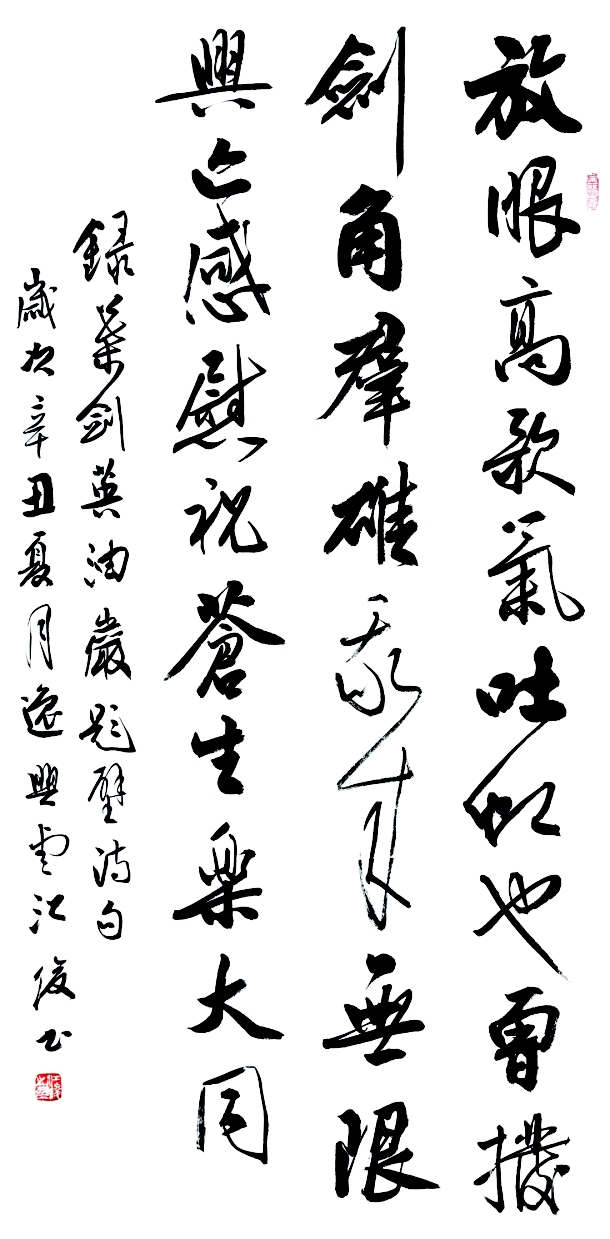 放眼高歌氣吐虹也曾撥
劍角羣雄我來無限
興亡感慰祝蒼生樂大同
錄葉劍英油巖題壁詩句
歲次辛丑夏月逸興雲江俊書